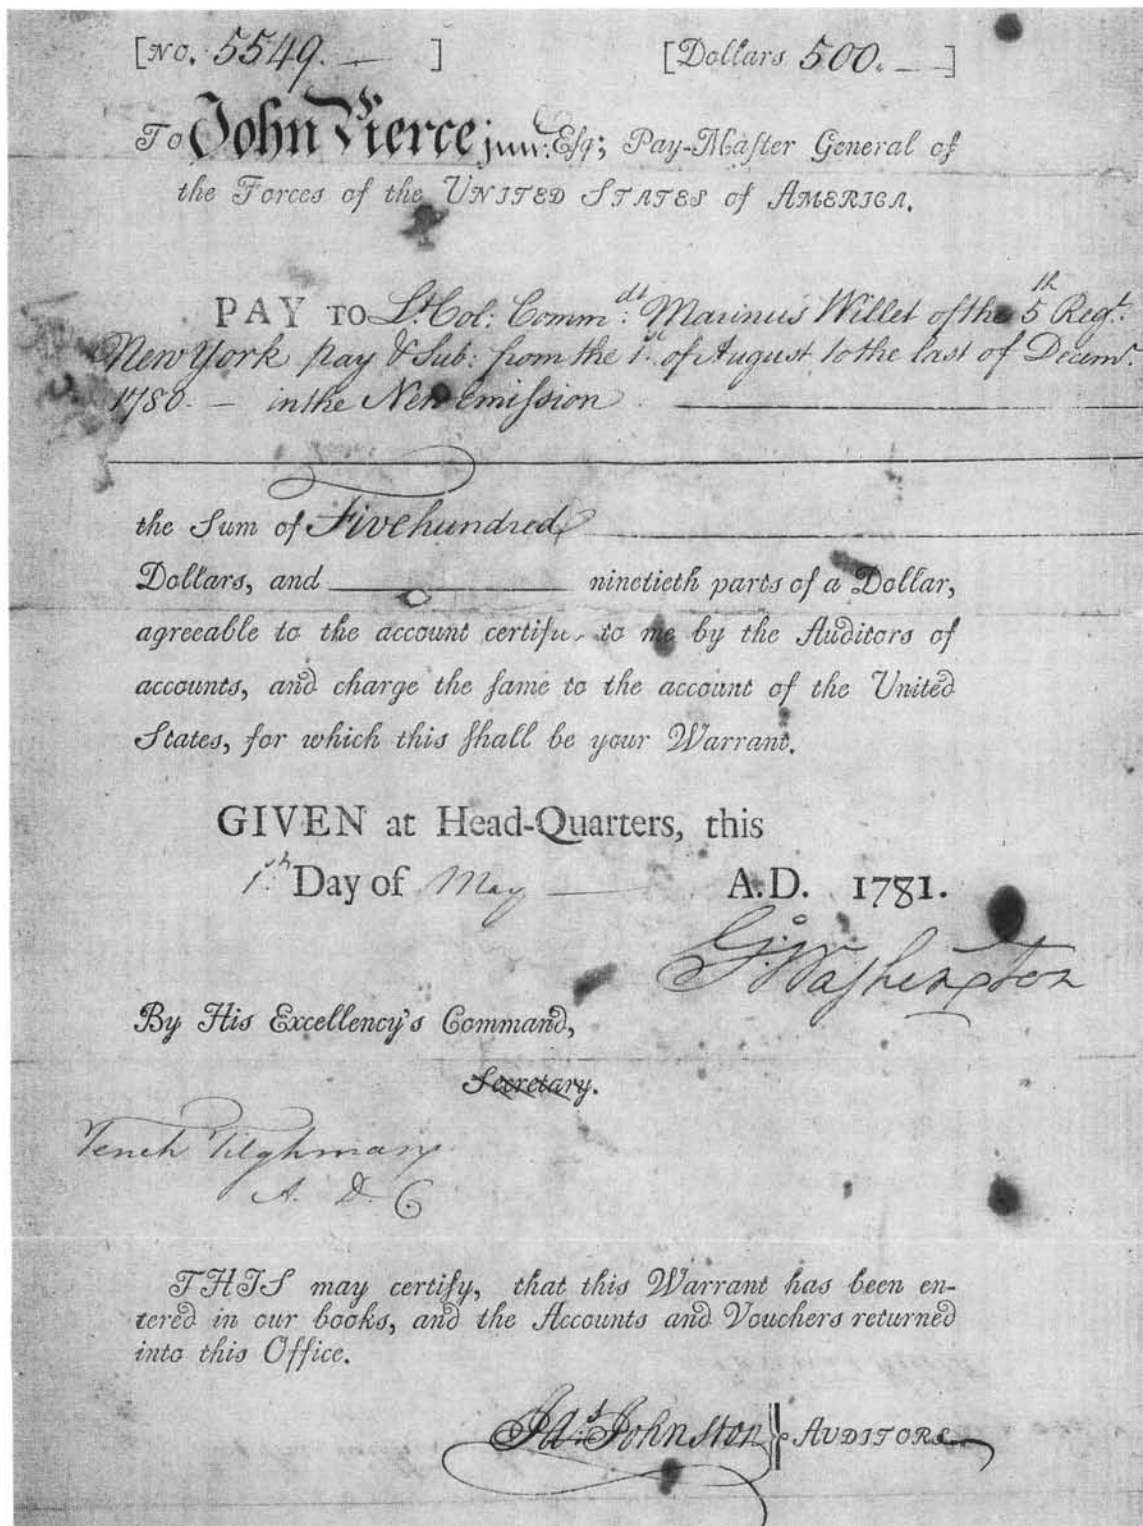 [No. 5549. — ] [Dollars 500. — ]
To John Pierce junr. Esq; Pay-Maſter General of
the Forces of the UNITED STATES of AMERICA.
PAY TO Lt. Col: Commdt: Marinus Willet of the 5th Regt.
New York pay & Sub: from the 1st. of August to the last of Decemr.
1780. — in the New Emiſsion
the Sum of Five hundred
Dollars, and ——— ninetieth parts of a Dollar,
agreeable to the account to me by the Auditors of
accounts, and charge the ſame to the account of the United
States, for which this ſhall be your Warrant.
GIVEN at Head-Quarters, this
1sth Day of May — A.D. 1781.
Go: Waſhington
By His Excellency's Command,
Secretary.
Tench Tilghman
A. D. C
THIS may certify, that this Warrant has been en-
tered in our books, and the Accounts and Vouchers returned
into this Office.
Jas. Johnston } AUDITORS